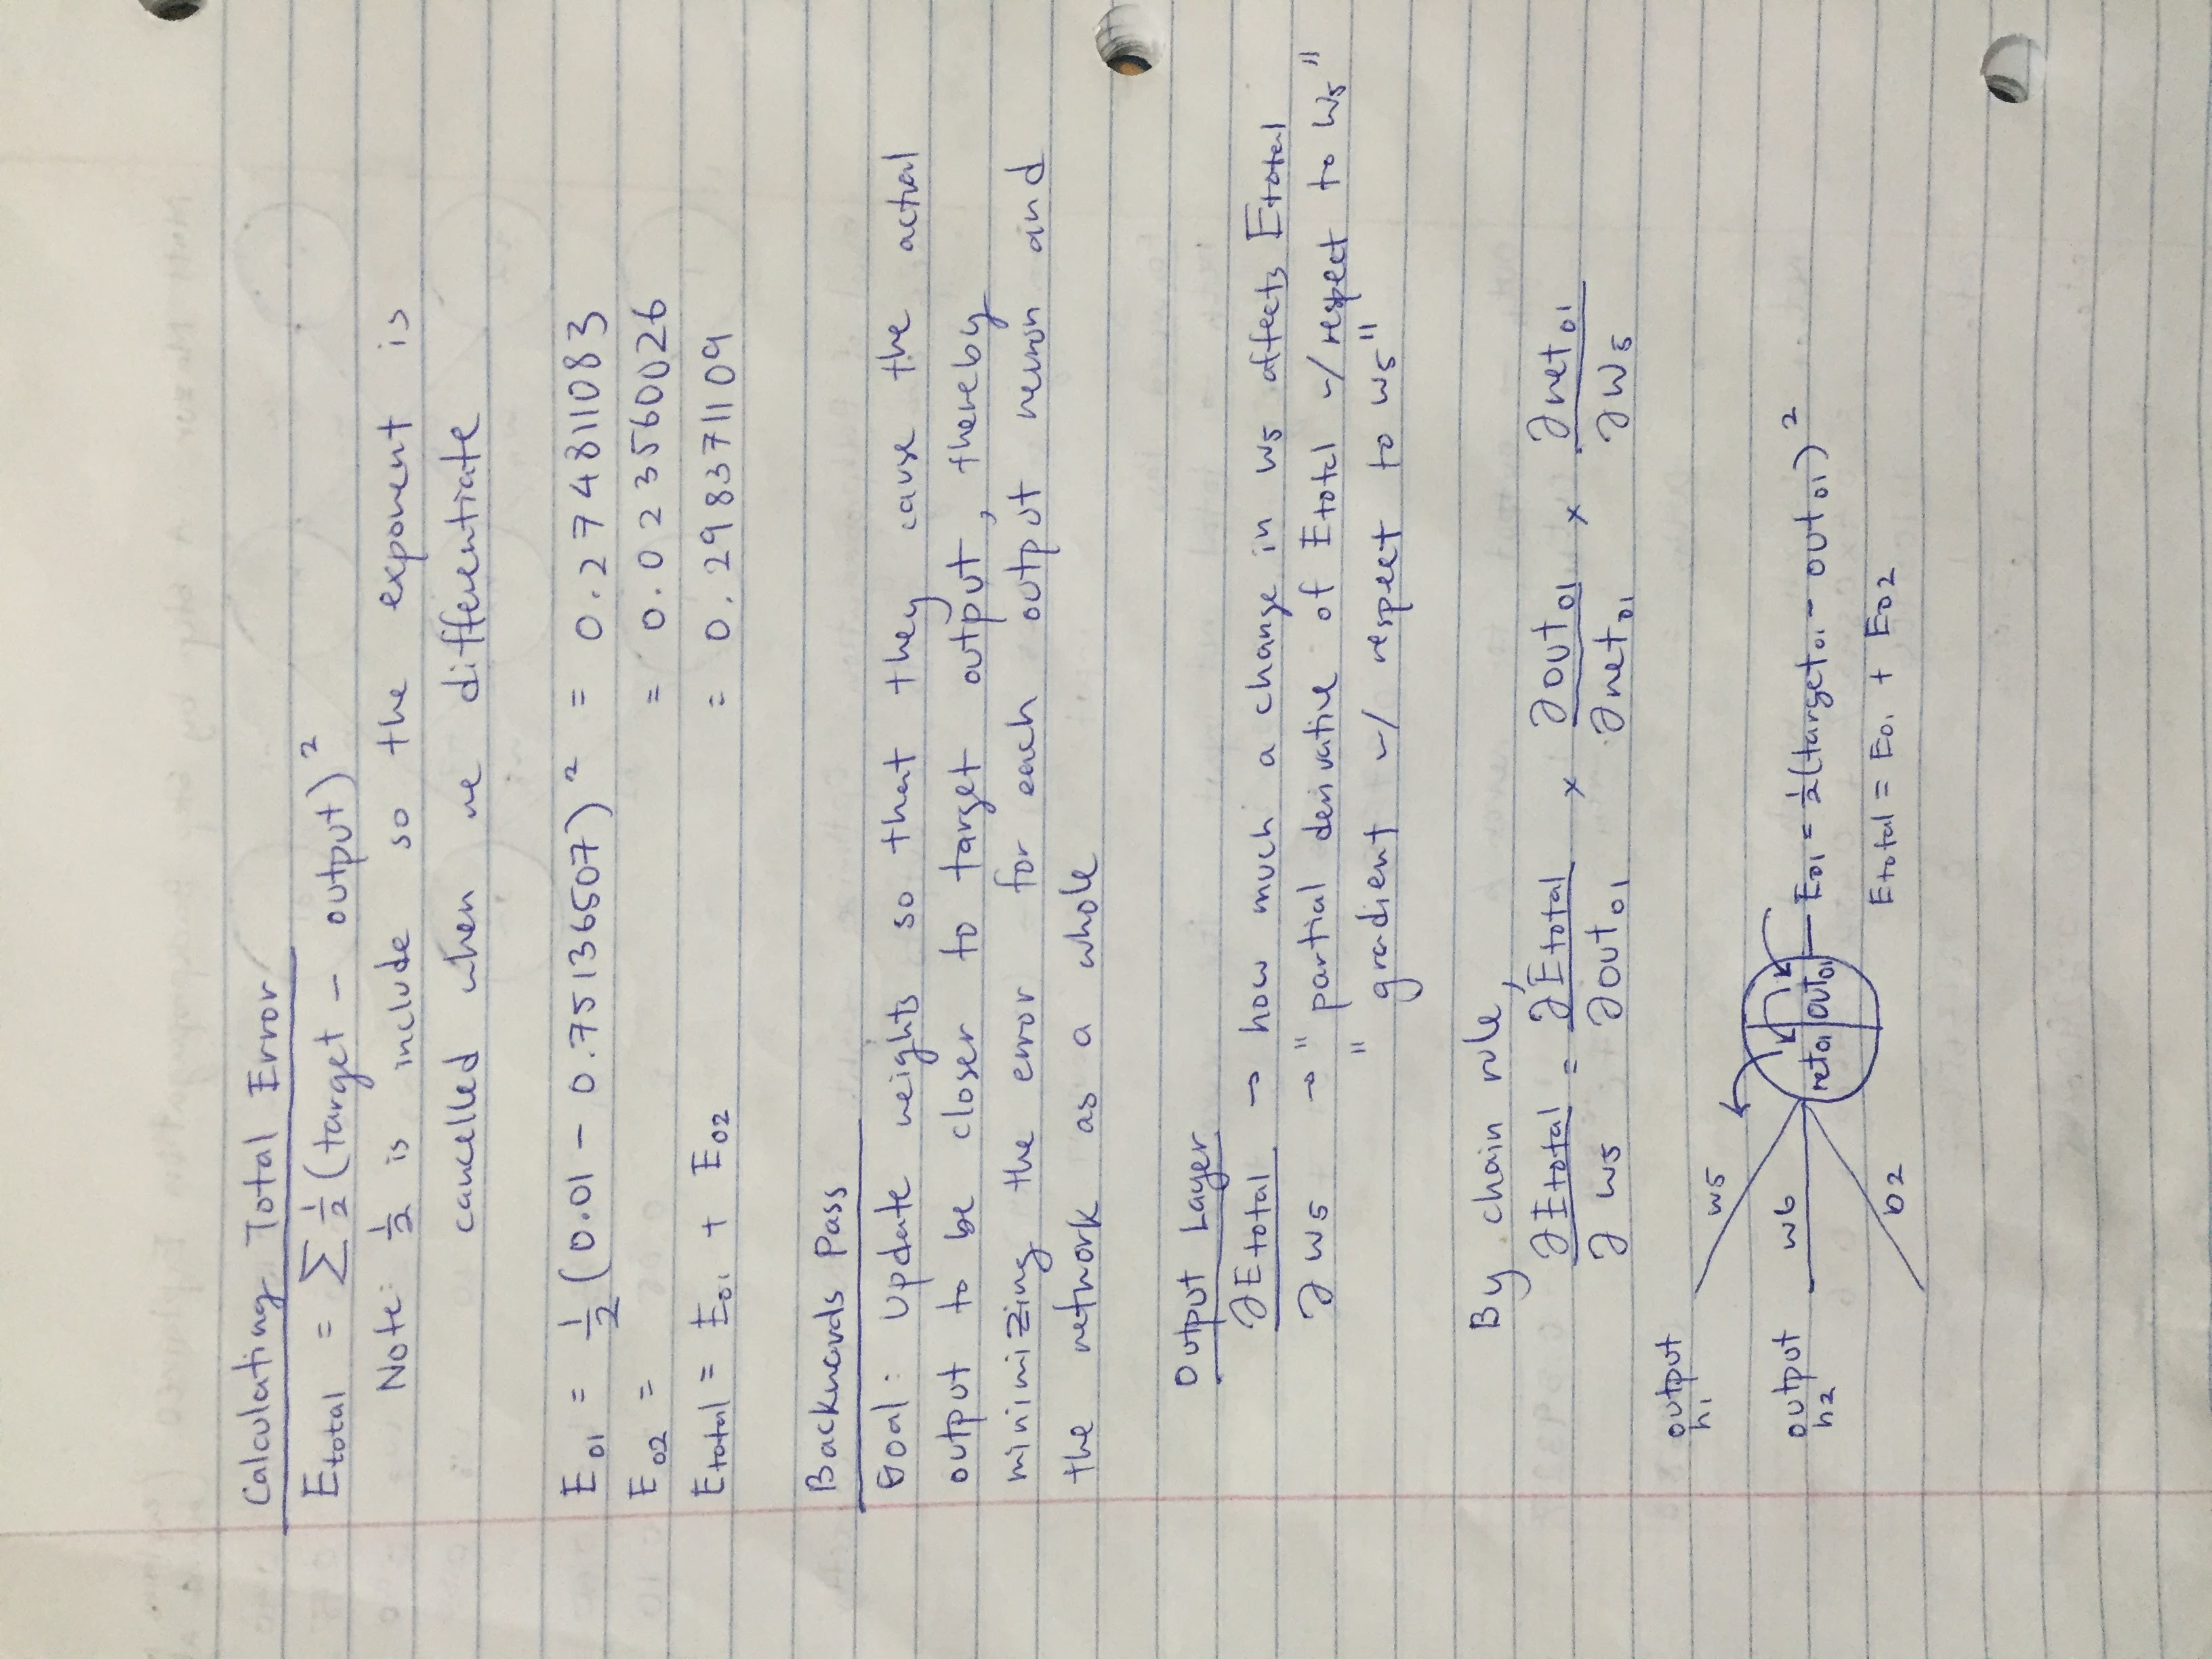 Calculating Total Error
Etotal = Σ ½ (target - output)²
Note: ½ is include so the exponent is
cancelled when we differentiate
E01 = ½ (0.01 - 0.75136507)² = 0.274811083
E02 = = 0.023560026
Etotal = E01 + E02 = 0.298371109
Backwards Pass
Goal: Update weights so that they cause the actual
output to be closer to target output, thereby
minimizing the error for each output neuron and
the network as a whole
Output Layer
∂Etotal → how much a change in w5 affects Etotal
∂w5 → "partial derivative of Etotal w/ respect to w5"
"gradient w/ respect to w5"
By chain rule,
∂Etotal = ∂Etotal × ∂out01 × ∂net01
∂w5 ∂out01 ∂net01 ∂w5
output
h1
w5
output
h2
w6
net01 out01 E01 = ½(target01 - out01)²
b2
Etotal = E01 + E02